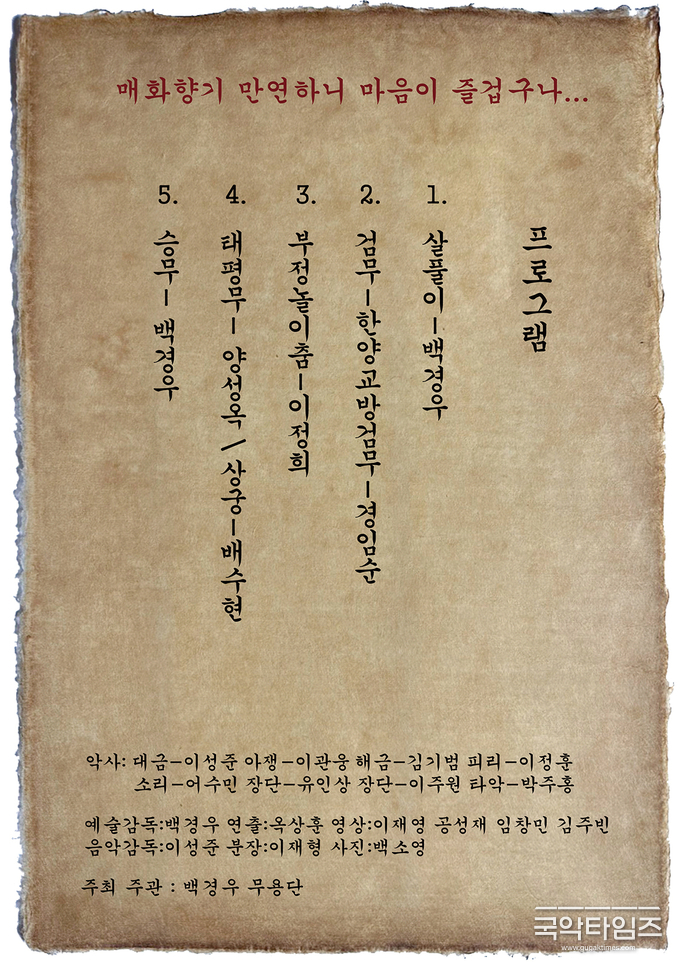 매화향기 만연하니 마음이 즐겁구나...
프로그램
1. 살풀이-백경우
2. 검무-한양교방검무-경임순
3. 부정놀이춤-이정희
4. 태평무- 양성옥 / 상궁-배수현
5. 승무- 백경우
악사: 대금-이성준 아쟁-이관웅 해금-김기범 피리-이정훈
소리-어수민 장단-유인상 장단-이주원 타악-박주홍
예술감독:백경우 연출:옥상훈 영상:이재영 공성재 임창민 김주빈
음악감독:이성준 분장:이재형 사진:백소영
주최 주관 : 백경우 무용단
국악타임즈
www.gugaktimes.com